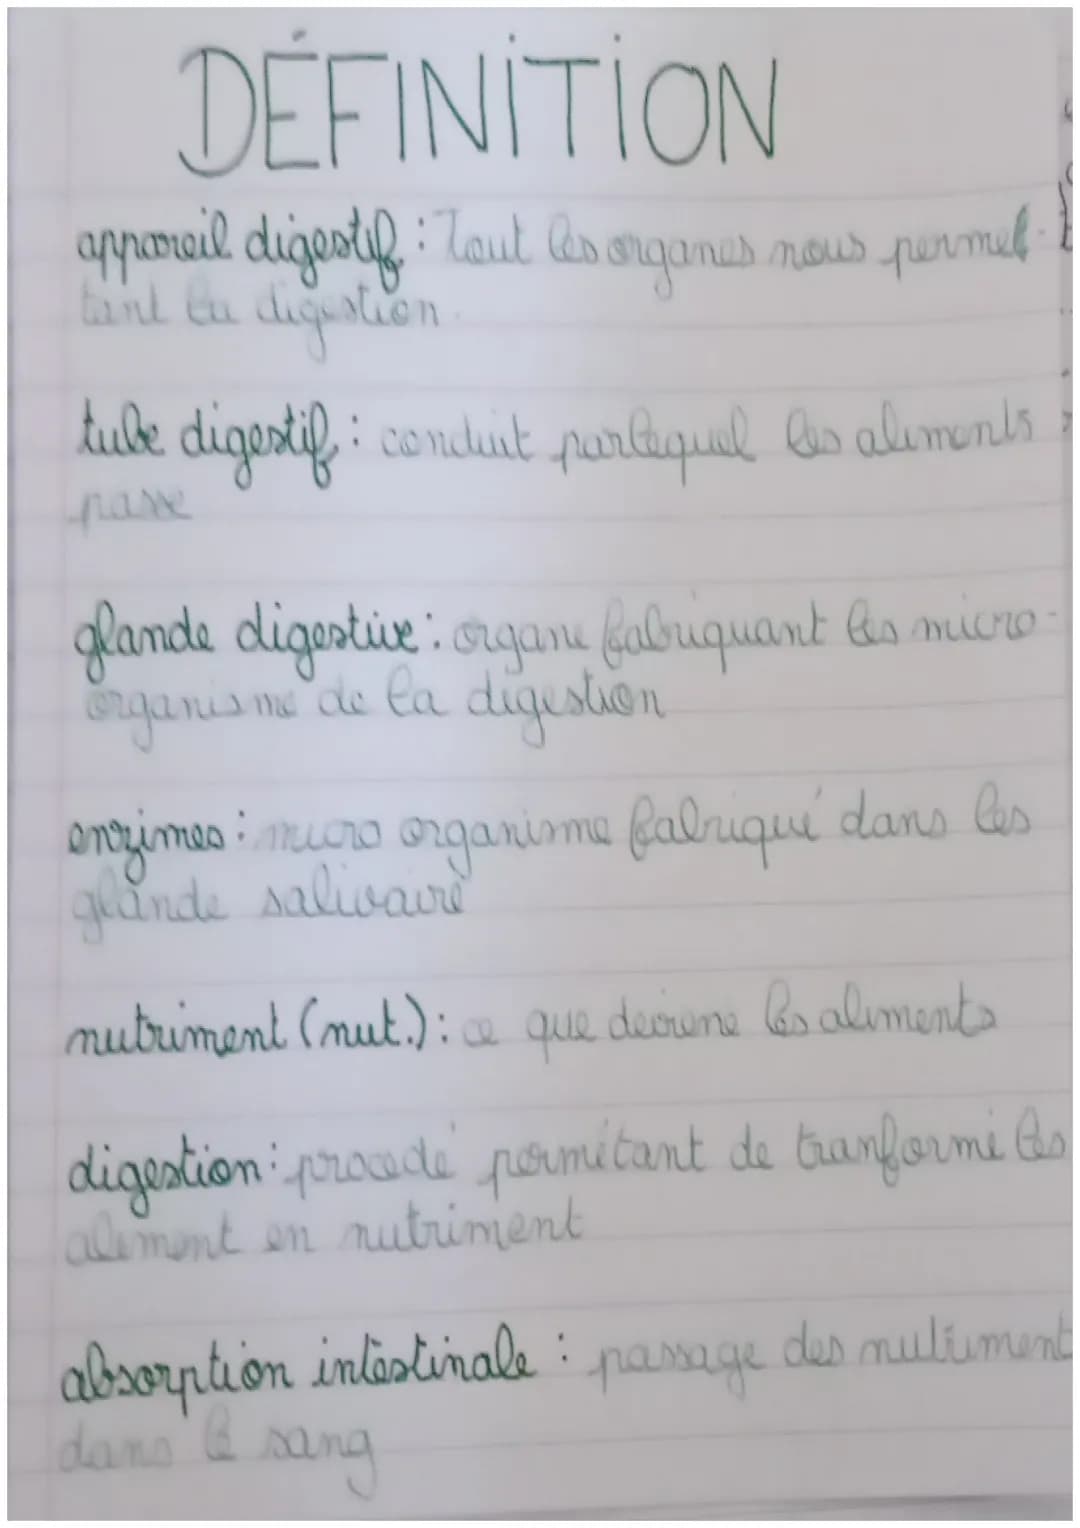 DÉFINITION
appareil digestif : Tout les organes nous permet-
tant la digestion.
tube digestif : conduit parlequel les aliments
passe
glande digestive : organe fabriquant les micro-
organisme de la digestion
enzimes : micro organisme fabriqué dans les
glande salivaire
nutriment (nut.) : ce que deviene les aliments
digestion : procedé permétant de tranformé les
aliment en nutriment
absorption intestinale : passage des nutriment
dans le sang